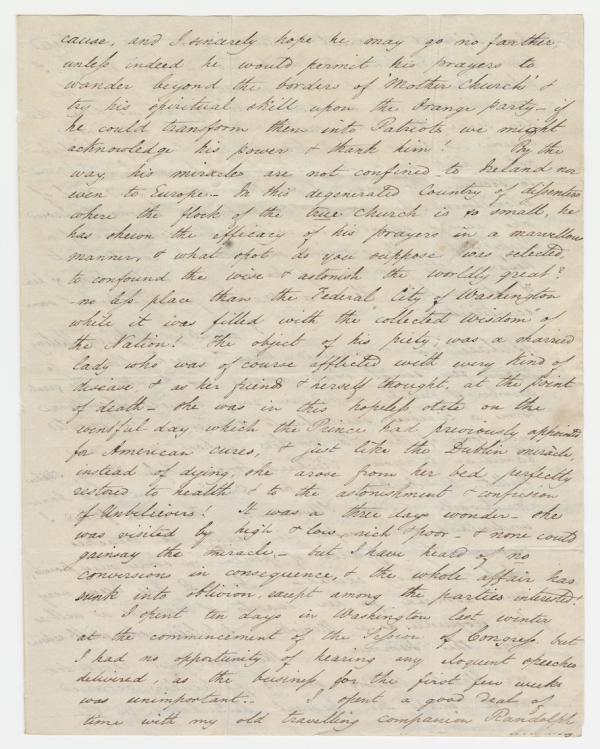 cause, and I sincerely hope he may go no farther,
unless indeed he would permit his prayers to
wander beyond the borders of 'Mother Church' &
try his spiritual skill upon the Orange party – if
he could transform them into Patriots we might
acknowledge his power & thank him! By the
way, his miracles are not confined to Ireland nor
even to Europe – In this degenerated Country of dissenters
where the flock of the true Church is so small, he
has shewn the efficacy of his prayers in a marvellous
manner, & what spot do you suppose was selected,
to confound the wise & astonish the worldly great?
– no less place than the Federal City of Washington
while it was filled with the "collected Wisdom" of
the Nation! The object of his piety was a married
lady who was of course afflicted with every kind of
disease, & as her friends & herself thought, at the point
of death – she was in this hopeless state on the
eventful day which the Prince had previously appointed
for American cures, & just like the Dublin miracle,
instead of dying, she arose from her bed perfectly
restored to health & to the astonishment & confusion
of Unbelievers! It was a three days wonder – she
was visited by high & low, rich & poor – & none could
gainsay the miracle – but I have heard of no
conversions in consequence, & the whole affair has
sunk into oblivion, except among the parties interested!
I spent ten days in Washington last winter
at the commencement of the Session of Congress but
I had no opportunity of hearing any eloquent speeches
delivered, as the business for the first few weeks
was unimportant.. I spent a good deal of
time with my old travelling companion Randolph